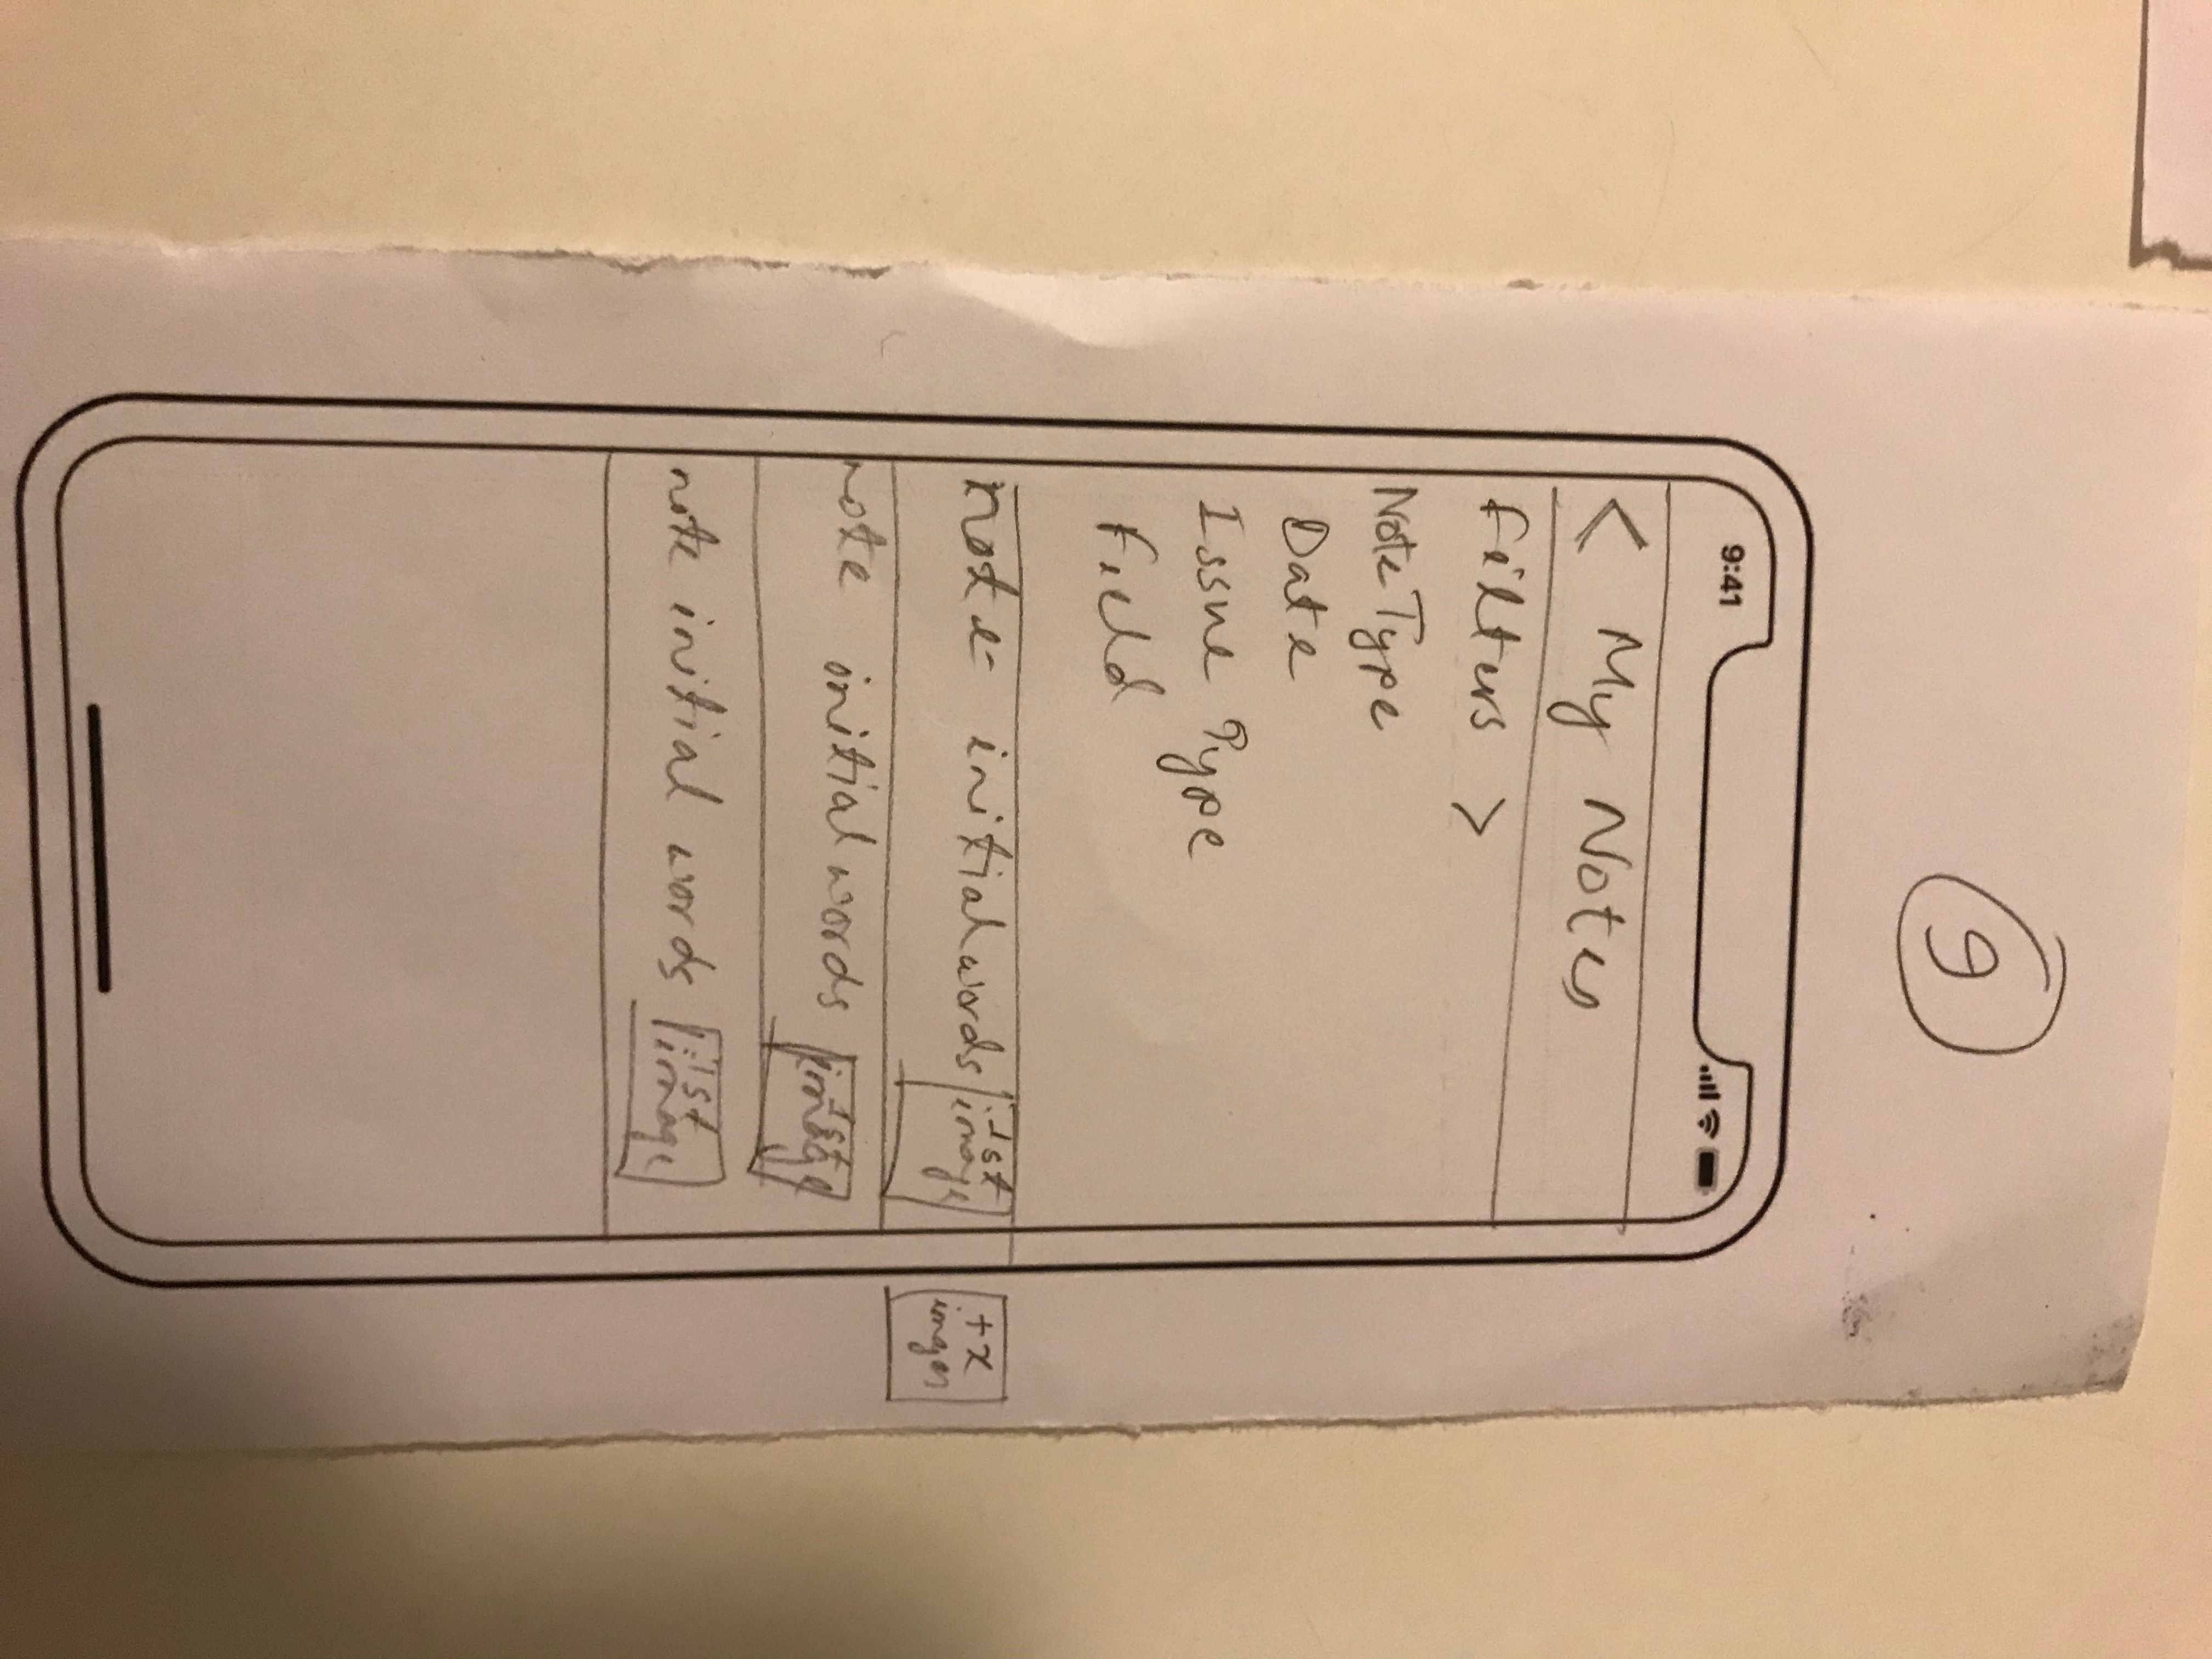 9
9:41
< My Notes
Filters >
Note Type
Date
Issue Type
Field
note initial words 1st image
+x images
note initial words 1st image
note initial words 1st image